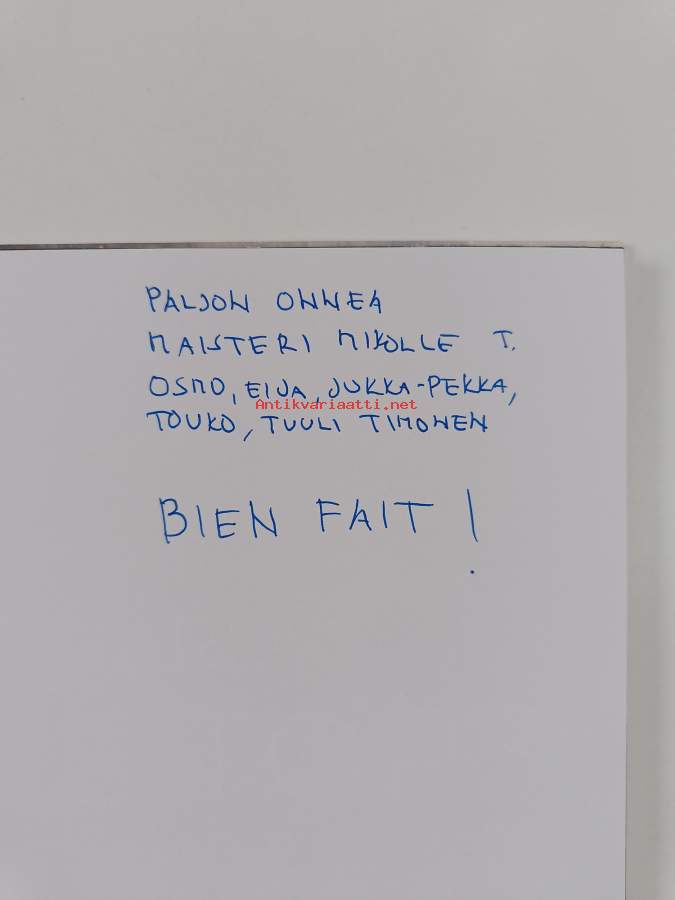 PALJON ONNEA
MAISTERI MIKOLLE T.
OSMO, EIJA, JUKKA-PEKKA,
Antikvariaatti.net
TOUKO, TUULI TIMONEN
BIEN FAIT!